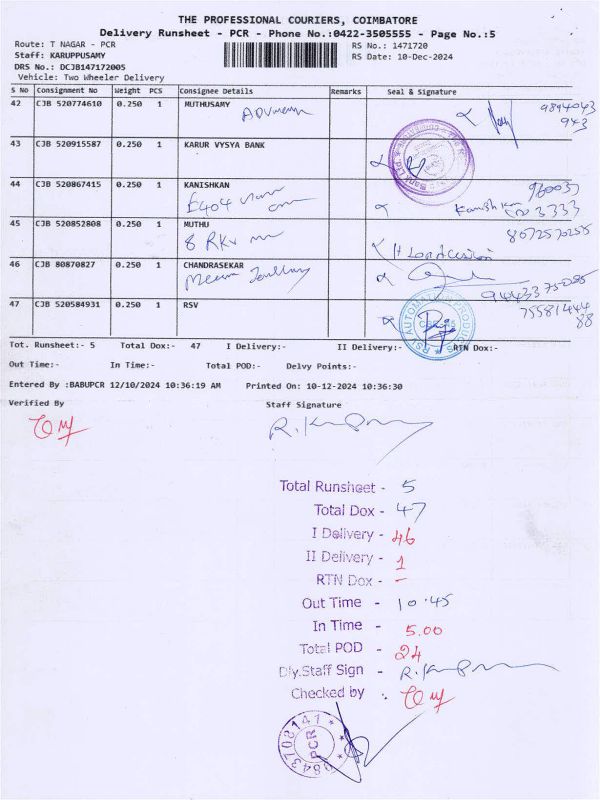 THE PROFESSIONAL COURIERS, COIMBATORE
Delivery Runsheet - PCR - Phone No.:0422-3505555 - Page No.:5
Route: T NAGAR - PCR RS No.: 1471720
Staff: KARUPPUSAMY RS Date: 10-Dec-2024
DRS No.: DCJB147172005
Vehicle: Two Wheeler Delivery
S No Consignment No Weight PCS Consignee Details Remarks Seal & Signature
42 CJB 520774610 0.250 1 MUTHUSAMY
43 CJB 520915587 0.250 1 KARUR VYSYA BANK
44 CJB 520867415 0.250 1 KANISHKAN
E404
Kanishkan
45 CJB 520852808 0.250 1 MUTHU 8072570255
8 RKV
46 CJB 80870827 0.250 1 CHANDRASEKAR
47 CJB 520584931 0.250 1 RSV 75581444
88
Tot. Runsheet:- 5 Total Dox:- 47 I Delivery:- II Delivery:- RTN Dox:-
Out Time:- In Time:- Total POD:- Delvy Points:-
Entered By :BABUPCR 12/10/2024 10:36:19 AM Printed On: 10-12-2024 10:36:30
Verified By Staff Signature
Total Runsheet - 5
Total Dox - 47
I Delivery - 46
II Delivery - 1
RTN Dox - -
Out Time - 10.45
In Time - 5.00
Total POD - 24
Dly.Staff Sign -
Checked by :
PCR